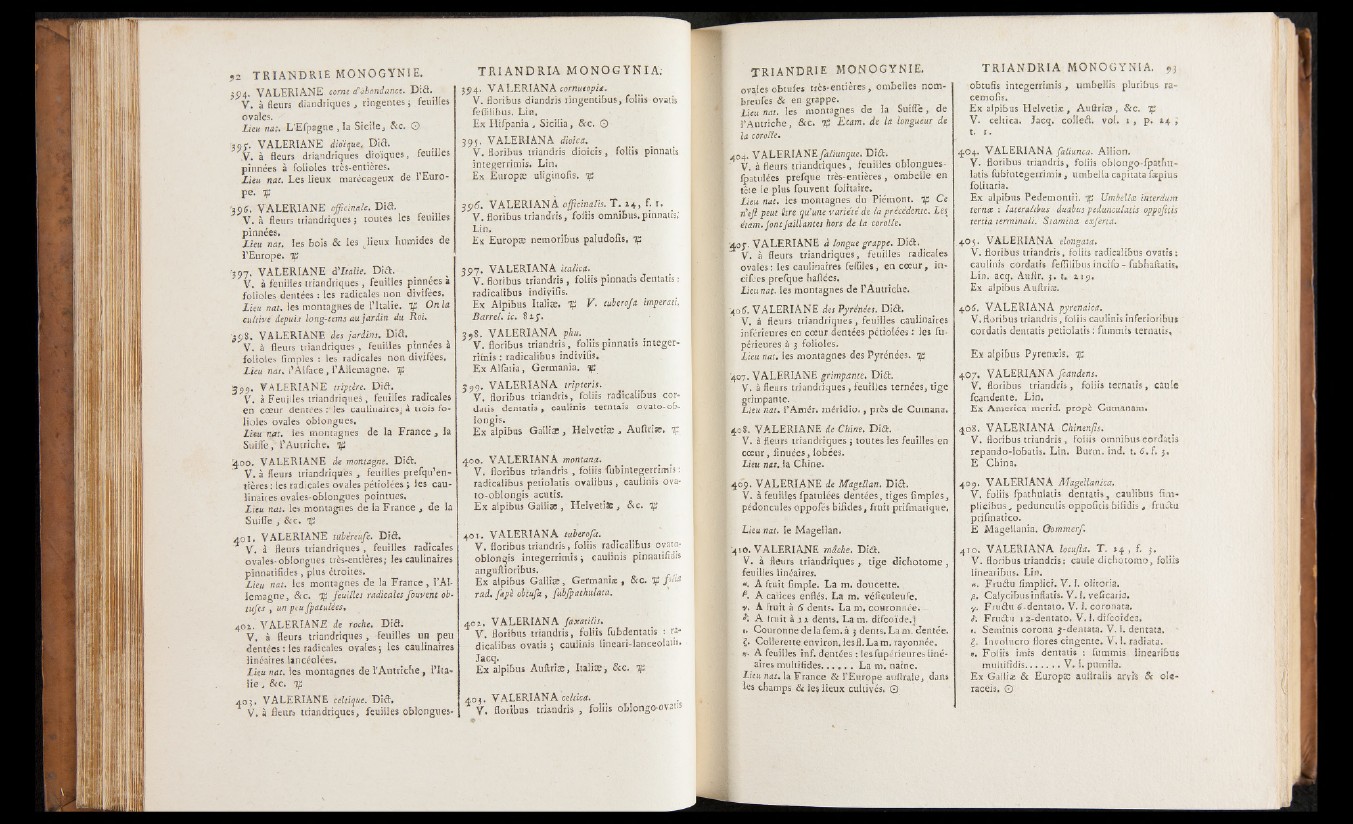 92 TRIANDRIE MONOGYNIE.
394. VALERIANE corne d'abondance. Dict.
V. à fleurs diandriques, ringentes; feuilles
ovales.
Lieu nat. L'Espagne, la Sicile, &c. ☉
395. VALERIANE dioïque, Dict.
V. à fleurs driandriques dioiques, feuilles
pinnées à folioles très-entières.
Lieu nat. Les lieux marécageux de l'Euro-
pe. ♃
396. VALERIANE officinale. Dict.
V. à fleurs triandriques; toutes les feuilles
pinnées.
Lieu nat. les bois & les lieux humides de
l'Europe. ♃
397. VALERIANE d'Italie. Dict.
V. à feuilles triandriques, feuilles pinnées à
folioles dentées : les radicales non divisées.
Lieu nat. les montagnes de l'Italie. ♃ On la
cultive depuis long-tems au jardin du Roi.
398. VALERIANE des jardins. Dict.
V. à fleurs triandriques, feuilles pinnées à
folioles simples : les radicales non divisées.
Lieu nat. l'Alsace, l'Allemagne. ♃
399. VALERIANE triptère. Dict.
V. à Feuilles triandriques, feuilles radicales
en cœur dentées : les caulinaires, à trois fo-
lioles ovales oblongues.
Lieu nat. les montagnes de la France, la
Suisse, l'Autriche. ♃
400. VALERIANE de montagne. Dict.
V. à fleurs triandriques, feuilles presqu'en-
tières : les radicales ovales pétiolées; les cau-
linaires ovales-oblongues pointues.
Lieu nat. les montagnes de la France, de la
Suisse, &c. ♃
401. VALERIANE tubéreuse. Dict.
V. à fleurs triandriques, feuilles radicales
ovales-oblongues très-entières; les caulinaires
pinnatifides, plus étroites.
Lieu nat. les montagnes de la France, l'Al-
lemagne, &c. ♃ feuilles radicales souvent ob-
tuses, un peu spatulées.
402. VALERIANE de roche. Dict.
V. à fleurs triandriques, feuilles un peu
dentées : les radicales ovales; les caulinaires
linéaires lancéolées.
Lieu nat. les montagnes de l'Autriche, l'Ita-
lie, &c. ♃
403. VALERIANE celtique. Dict.
V. à fleurs triandriques, feuilles oblongues-
TRIANDRIA MONOGYNIA.
394. VALERIANA cornucopiæ.
V. floribus diandris ringentibus, foliis ovatis
sessilibus. Lin.
Ex Hispania, Sicilia, &c. ☉
395. VALERIANA dioica.
V. floribus triandris dioicis, foliis pinnatis
integerrimis. Lin.
Ex Europæ uliginosis. ♃
396. VALERIANA officinalis. T. 24, f. 1.
V. floribus triandris, foliis omnibus pinnatis.
Lin.
Ex Europæ nemoribus paludosis, ♃
397. VALERIANA italica.
V. floribus triandris, foliis pinnatis dentatis :
radicalibus indivisis.
Ex Alpibus Italiæ. ♃ V. tuberosa imperati.
Barrel. ic. 825.
398. VALERIANA phu.
V. floribus triandris, foliis pinnatis integer-
rimis : radicalibus indivisis.
Ex Alsatia, Germania. ♃
399. VALERIANA tripteris.
V. floribus triandris, foliis radicalibus cor-
datis dentatis, caulinis ternatis ovato-ob-
longis.
Ex alpibus Galliæ, Helvetiæ, Austriæ. ♃
400. VALERIANA montana.
V. floribus triandris, foliis subintegerrimis :
radicalibus petiolatis ovalibus, caulinis ova-
to-oblongis acutis.
Ex alpibus Galliæ, Helvetiæ, &c. ♃
401. VALERIANA tuberosa.
V. floribus triandris, foliis radicalibus ovata-
oblongis integerrimis; caulinis pinnatifidis
angustioribus.
Ex alpibus Galliæ, Germaniæ, &c. ♃ folia
rad. sæpè obtusa, subspathulata.
402. VALERIANA saxatilis.
V. floribus triandris, foliis subdentatis : ra-
dicalibus ovatis; caulinis lineari-lanceolatis.
Jacq.
Ex alpibus Austriæ, Italiæ, &c. ♃
403. VALERIANA celtica.
V. floribus triandris, foliis oblongo-ovatis
TRIANDRIE MONOGYNIE.
ovales obtuses très-entières, ombelles nom-
breuses & en grappe.
Lieu nat. les montagnes de la Suisse, de
l'Autriche, &c. ♃ Etam. de la longueur de
la corolle.
404. VALERIANE saliunque. Dict.
V. à fleurs triandriques, feuilles oblongues-
spatulées presque très-entières, ombelle en
tête le plus souvent solitaire.
Lieu nat. les montagnes du Piémont. ♃ Ce
n'est peut être qu'une variété de la précédente. Les
étam. sont saillantes hors de la corolle.
405. VALERIANE à longue grappe. Dict.
V. à fleurs triandriques, feuilles radicales
ovales : les caulinaires sessiles, en cœur, in-
cisées presque hastées.
Lieu nat. les montagnes de l'Autriche.
406. VALERIANE des Pyrénées. Dict.
V. à fleurs triandriques, feuilles caulinaires
inférieures en cœur dentées pétiolées : les su-
périeures à 3 folioles.
Lieu nat. les montagnes des Pyrénées. ♃
407. VALERIANE grimpante. Dict.
V. à fleurs triandriques, feuilles ternées, tige
grimpante.
Lieu nat. l'Amér. méridio., près de Cumana.
408. VALERIANE de Chine. Dict.
V. à fleurs triandriques; toutes les feuilles en
cœur, sinuées, lobées.
Lieu nat. la Chine.
409. VALERIANE de Magellan. Dict.
V. à feuilles spatulées dentées, tiges simples,
pédoncules opposés bifides, fruit prismatique.
Lieu nat. le Magellan.
410. VALERIANE mâche. Dict.
V. à fleurs triandriques, tige dichotome,
feuilles linéaires.
α. A fruit simple. La m. doucette.
β. A calices enflés. La m. vésiculeuse.
γ. A fruit à 6 dents. La m. couronnée.
δ. A fruit à 12 dents. La m. discoïde.
ε. Couronne de la sem. à 3 dents. La m. dentée.
ζ. Collerette environ. les fl. La m. rayonnée.
η. A feuilles inf. dentées : les supérieures liné-
aires multifides...... La m. naine.
Lieu nat. la France & l'Europe australe, dans
les champs & les lieux cultivés. ☉
TRIANDRIA MONOGYNIA. 93
obtusis integerrimis, umbellis pluribus ra-
cemosis.
Ex alpibus Helvetiæ, Austriæ, &c. ♃
V. celtica. Jacq. collect. vol. 1, p. 24,
t. 1.
404. VALERIANA saliunca. Allion.
V. floribus triandris, foliis oblongo-spathu-
latis subintegerrimis, umbella capitata sæpius
solitaria.
Ex alpibus Pedemontii. ♃ Umbellæ interdum
ternæ : lateralibus duabus pedunculatis oppositis
tertia terminali. Stamina exserta.
405. VALERIANA elongata.
V. floribus triandris, foliis radicalibus ovatis :
caulinis cordatis sessilibus inciso-subhastatis.
Lin. acq. Austr. 3. t. 219.
Ex alpibus Austriæ.
406. VALERIANA pyrenaica.
V. floribus triandris, foliis caulinis inferioribus
cordatis dentatis petiolatis : summis ternatis.
Ex alpibus Pyrenæis. ♃
407. VALERIANA scandens.
V. floribus triandris, foliis ternatis, caule
scandente. Lin.
Ex America merid. propè Cumanam.
408. VALERIANA Chinensis.
V. floribus triandris, foliis omnibus cordatis
repando-lobatis. Lin. Burm. ind. t. 6. f. 3.
E China.
409. VALERIANA Magellanica.
V. foliis spathulatis dentatis, caulibus sim-
plicibus, pedunculis oppositis bifidis, fructu
prismatico.
E Magellania. Commers.
410. VALERIANA locusta. T. 24, f. 3.
V. floribus triandris : caule dichotomo, foliis
linearibus. Lin.
α. Fructu simplici. V. l. olitoria.
β. Calycibus inflatis. V. l. vesicaria.
γ. Fructu 6-dentato. V. l. coronata.
δ. Fructu 12-dentato. V. l. discoidea.
ε. Seminis corona 3-dentata. V. l. dentata.
ζ. Involucro flores cingente. V. l. radiata.
η. Foliis imis dentatis : summis linearibus
multifidis....... V. l. pumila.
Ex Galliæ & Europæ australis arvis & ole-
raceis. ☉